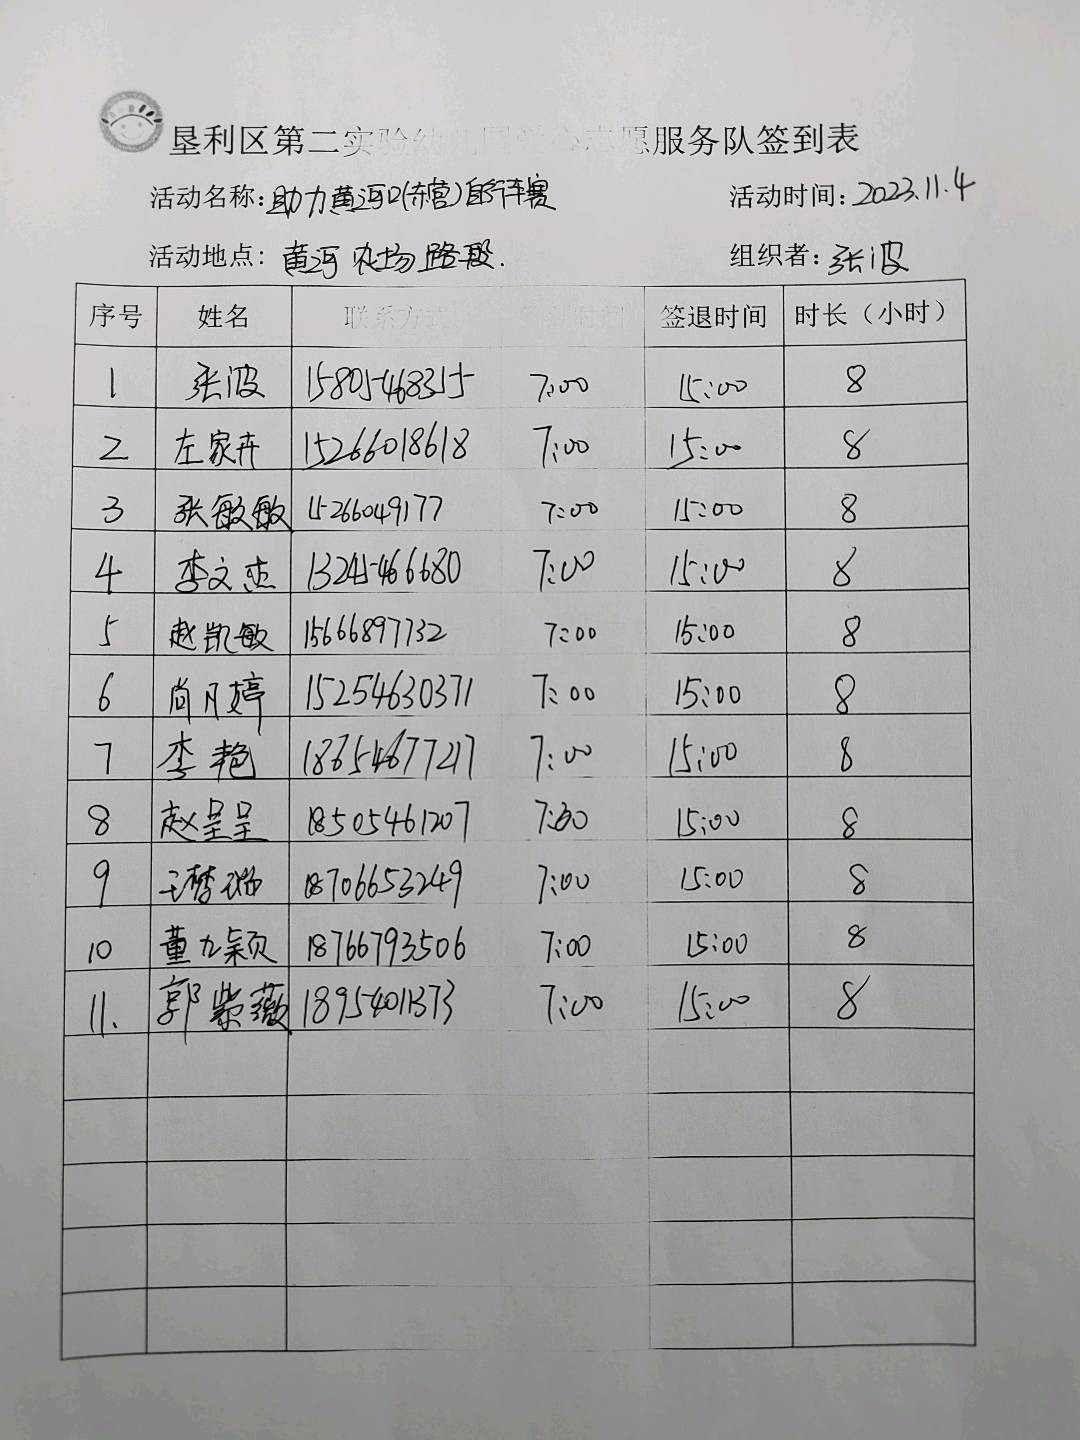 垦利区第二实验幼儿园爱心志愿服务队签到表
活动名称:助力黄河口(东营)自行车赛 活动时间:2023.11.4
活动地点: 黄河农场路段. 组织者:张波
序号 姓名 联系方式 签到时间 签退时间 时长(小时)
1 张波 15805468315 7:00 15:00 8
2 左家卉 15266018618 7:00 15:00 8
3 张敏敏 15266049177 7:00 15:00 8
4 李文杰 13245466680 7:00 15:00 8
5 赵凯敏 15666897732 7:00 15:00 8
6 尚月婷 15254630371 7:00 15:00 8
7 李艳 18654677217 7:00 15:00 8
8 赵呈呈 18505461207 7:00 15:00 8
9 王梦 18706653249 7:00 15:00 8
10 董九颖 18766793506 7:00 15:00 8
11. 郭紫薇 18954011373 7:00 15:00 8